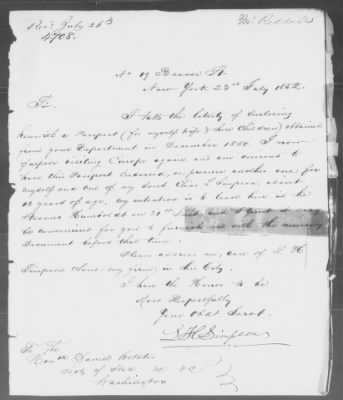 Recd July 26th
Mr. Reddall
4708.
No 19 Beaver St.
New York 23rd July 1852
Sir,
I take the liberty of enclosing
herewith a Passport (for myself Wife & Children) obtained
from your Department in December 1850. I now
purpose visiting Europe again and am desirous to
have this Passport endorsed, or procure another one for
myself and one of my Sons
years of age, my intention is to leave here in the
Steamer Humboldt on 31st Inst and I trust it may
be convenient for you to furnish me with the necessary
Document before that time.
Please address me, care of L H
Simpson in this City.
I have the Honor to be
Most Respectfully
Your Obdt Servt.
S H Simpson
To The
Honble Daniel Webster
Secty of State &c &c
Washington